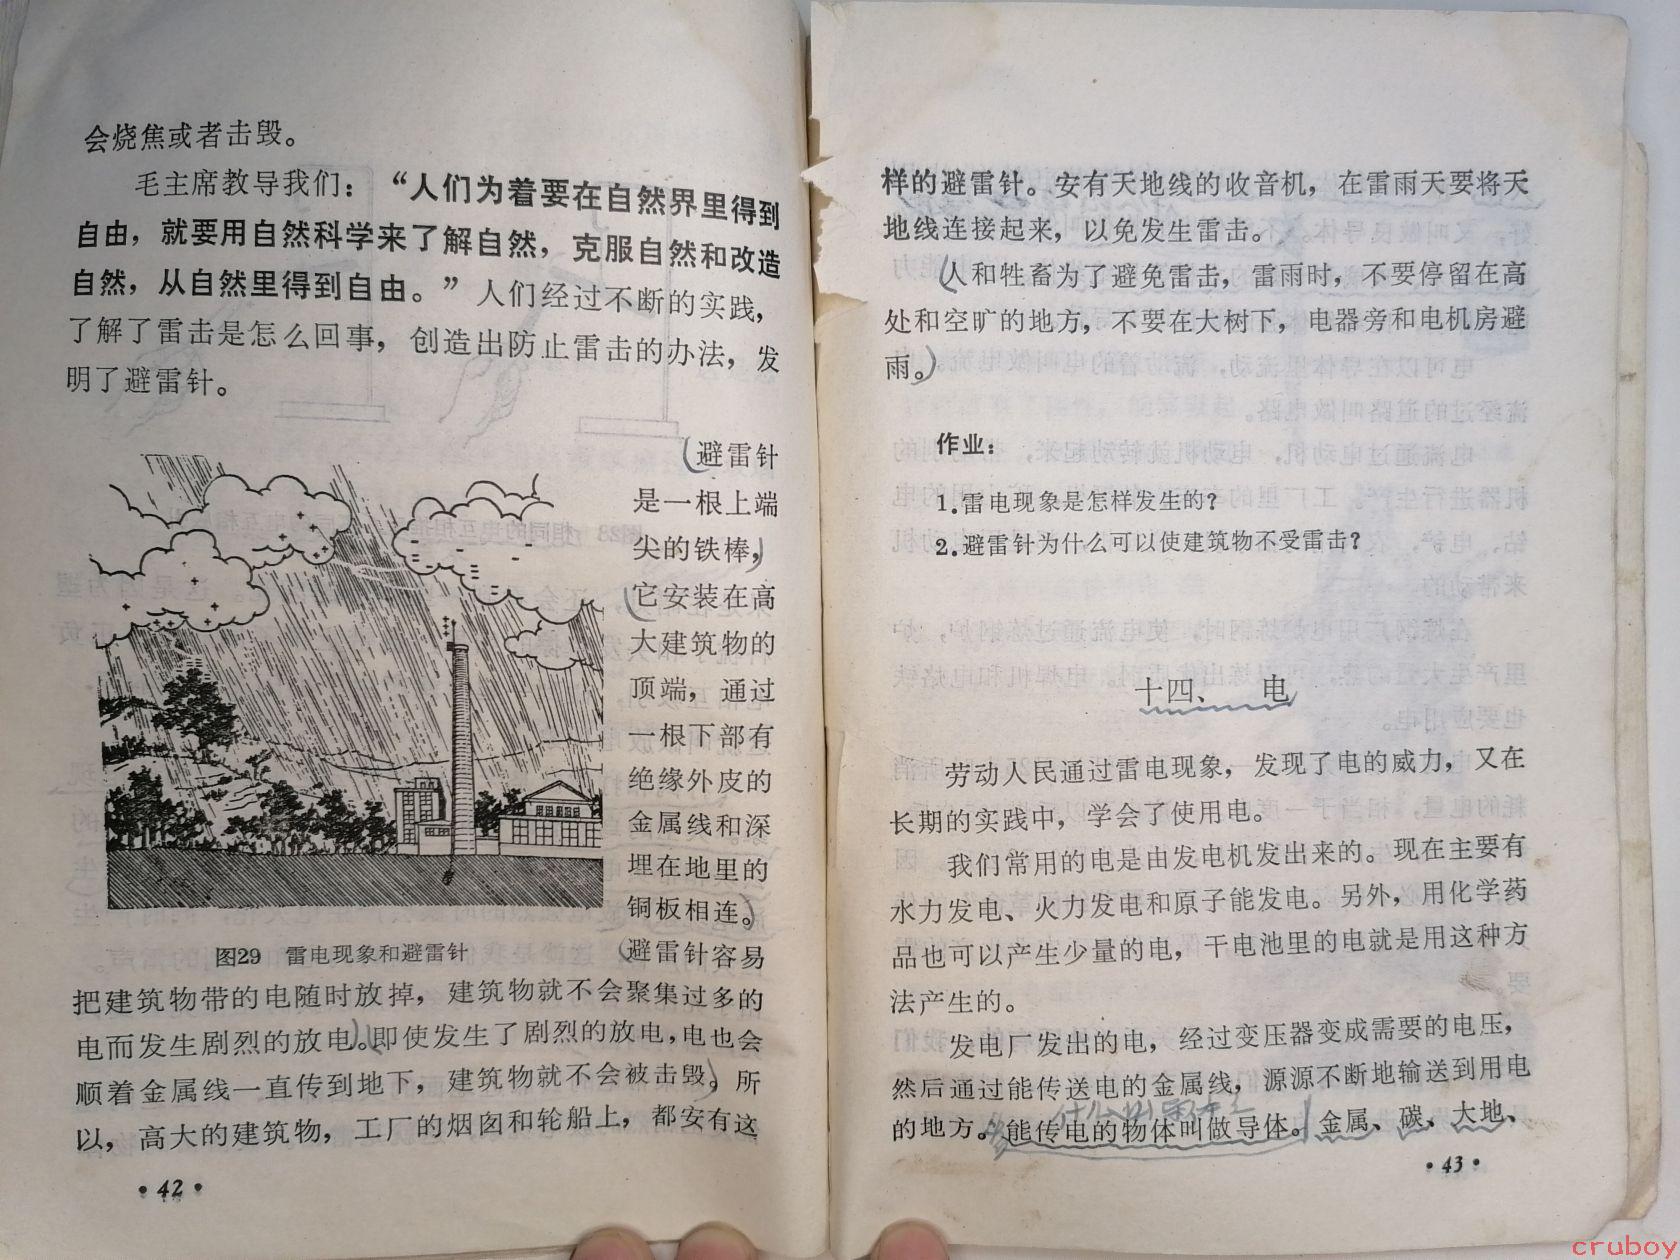 会烧焦或者击毁。
毛主席教导我们：“人们为着要在自然界里得到
自由，就要用自然科学来了解自然，克服自然和改造
自然，从自然里得到自由。”人们经过不断的实践，
了解了雷击是怎么回事，创造出防止雷击的办法，发
明了避雷针。
避雷针
是一根上端
尖的铁棒，
它安装在高
大建筑物的
顶端，通过
一根下部有
绝缘外皮的
金属线和深
埋在地里的
铜板相连。
图29 雷电现象和避雷针
避雷针容易
把建筑物带的电随时放掉，建筑物就不会聚集过多的
电而发生剧烈的放电。即使发生了剧烈的放电，电也会
顺着金属线一直传到地下，建筑物就不会被击毁。所
以，高大的建筑物，工厂的烟囱和轮船上，都安有这
·42·
样的避雷针。安有天地线的收音机，在雷雨天要将天
地线连接起来，以免发生雷击。
人和牲畜为了避免雷击，雷雨时，不要停留在高
处和空旷的地方，不要在大树下，电器旁和电机房避
雨。
作业：
1.雷电现象是怎样发生的？
2.避雷针为什么可以使建筑物不受雷击？
十四、 电
劳动人民通过雷电现象，发现了电的威力，又在
长期的实践中，学会了使用电。
我们常用的电是由发电机发出来的。现在主要有
水力发电、火力发电和原子能发电。另外，用化学药
品也可以产生少量的电，干电池里的电就是用这种方
法产生的。
发电厂发出的电，经过变压器变成需要的电压，
然后通过能传送电的金属线，源源不断地输送到用电
什么叫导体
的地方。能传电的物体叫做导体。金属、碳、大地、
·43·
cruboy